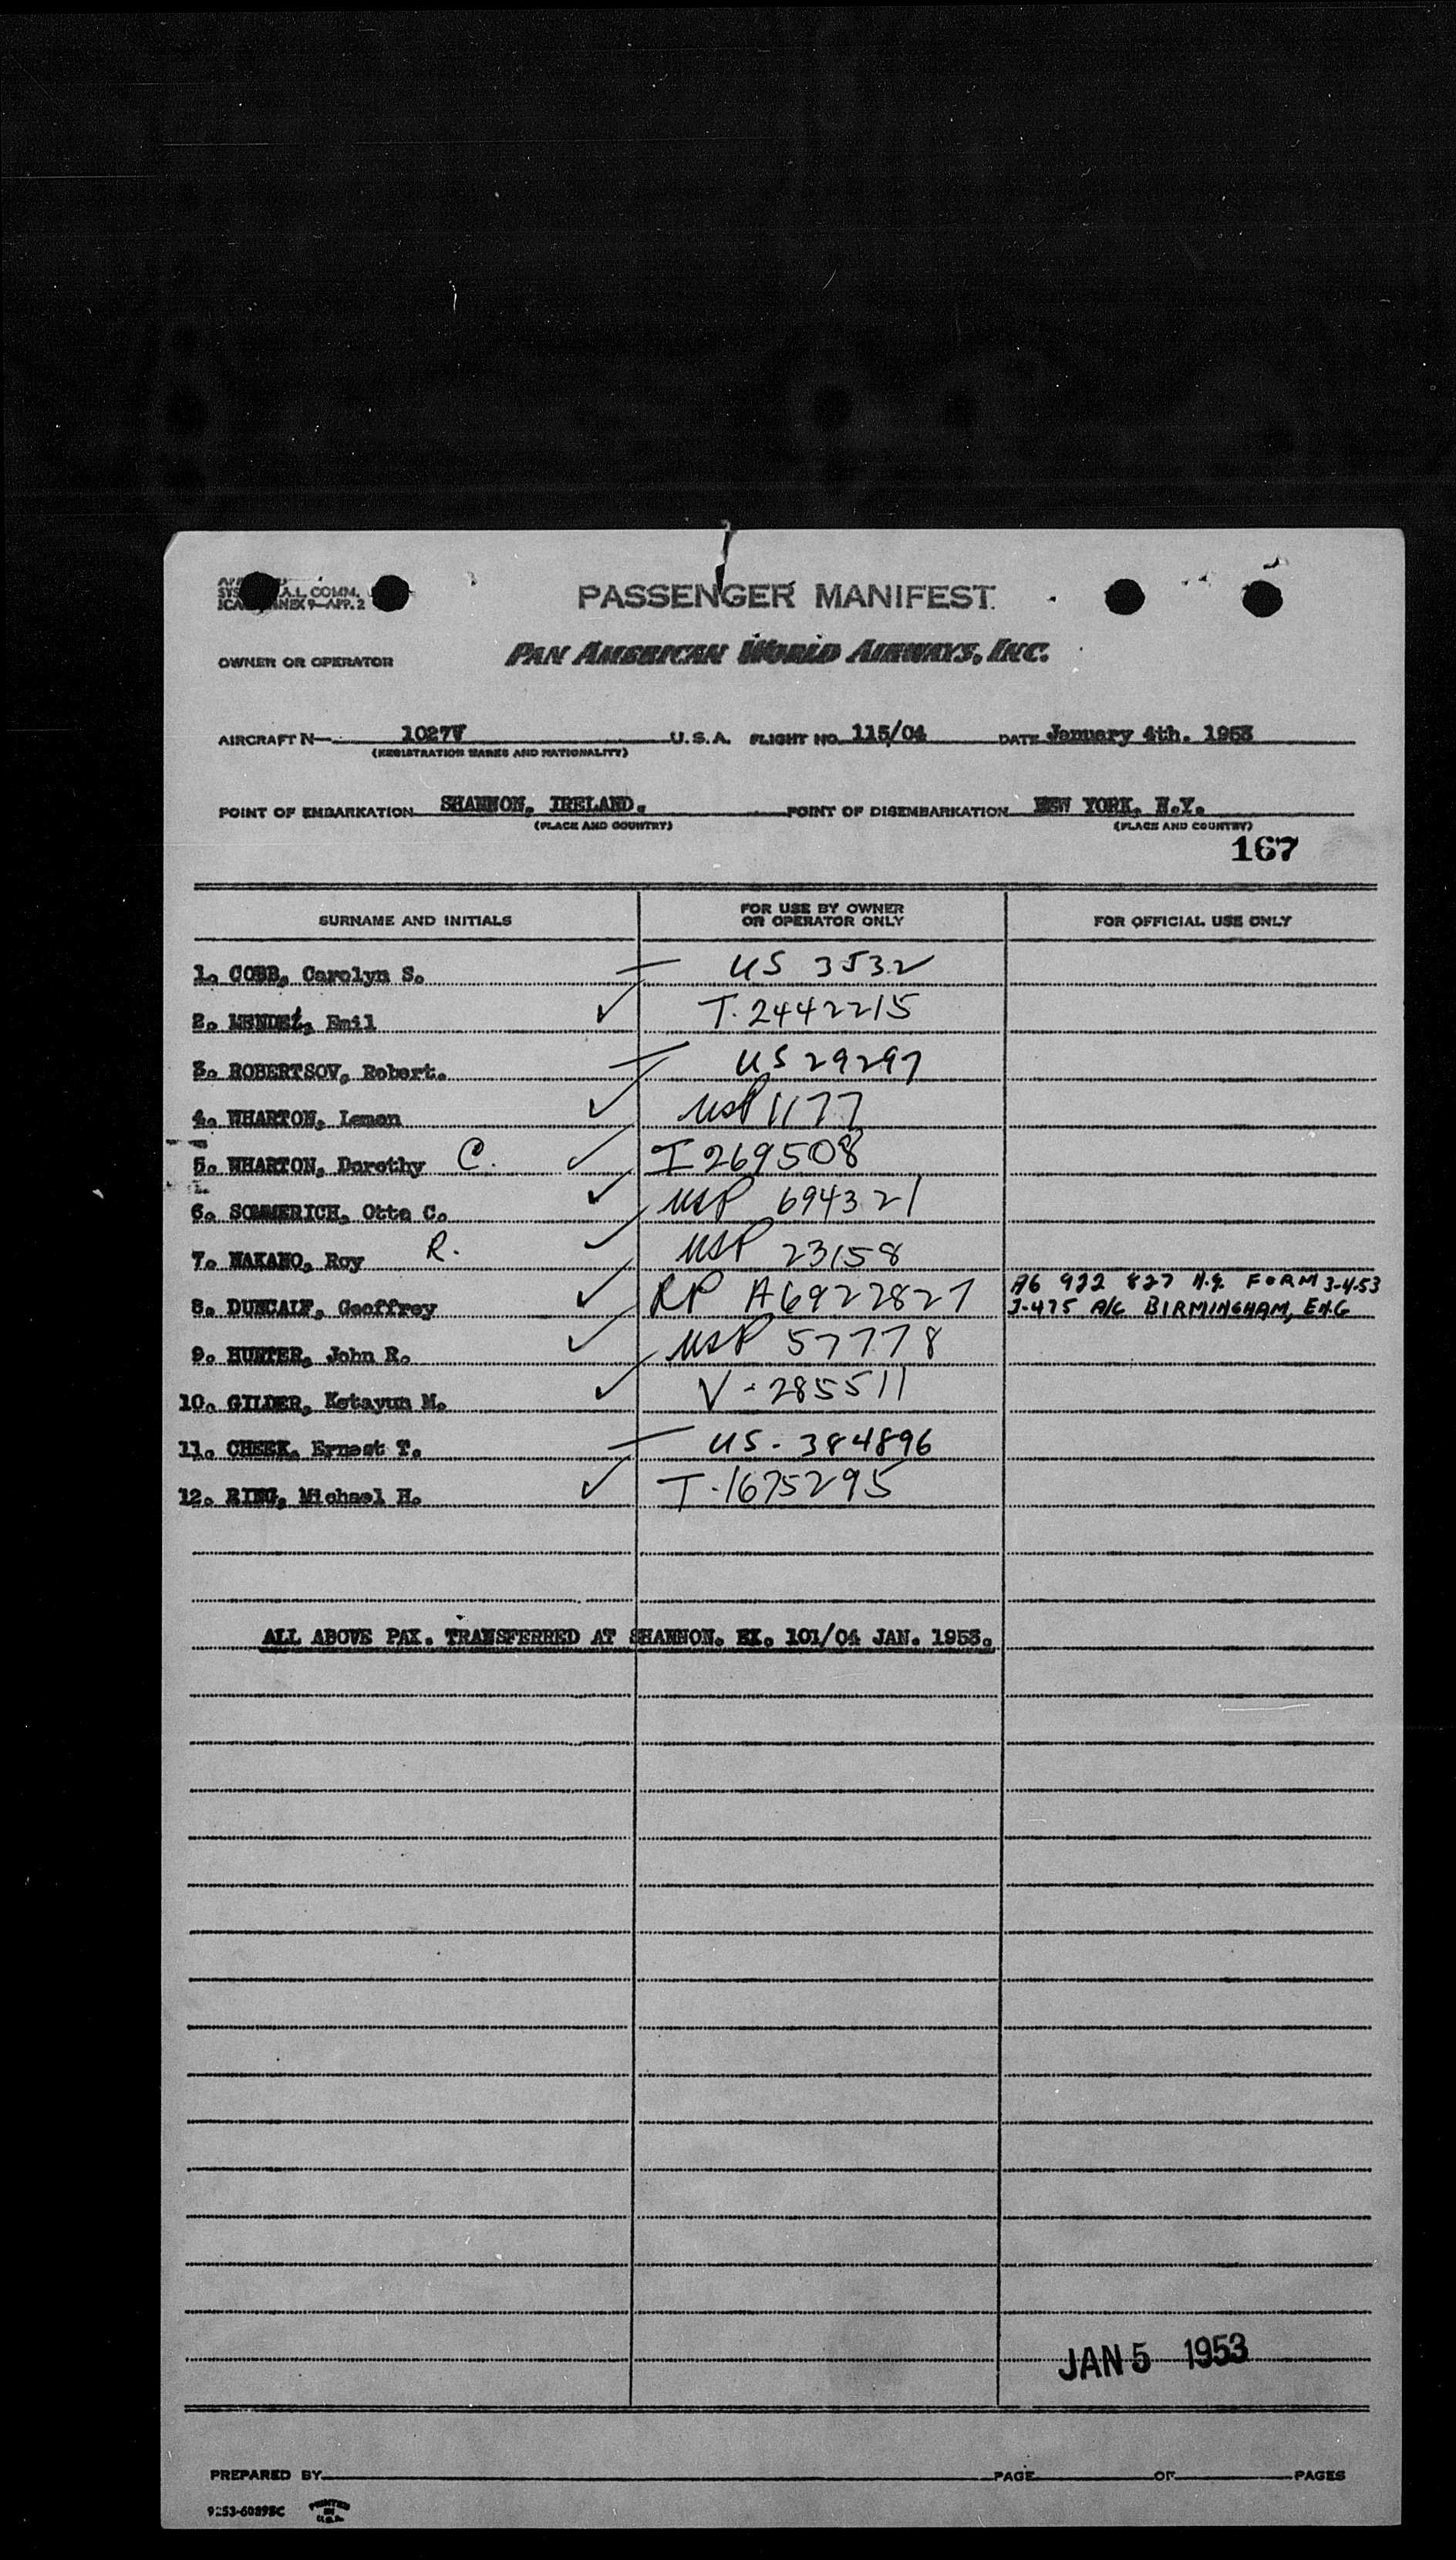 SYS A.I. COMM.
ICA ANNEX 9—APP. 2
PASSENGER MANIFEST
OWNER OR OPERATOR PAN AMERICAN WORLD AIRWAYS, INC.
AIRCRAFT N— 1027V U.S.A. FLIGHT NO. 115/04 DATE January 4th. 1953
(REGISTRATION MARKS AND NATIONALITY)
POINT OF EMBARKATION SHANNON, IRELAND. POINT OF DISEMBARKATION NEW YORK, N.Y.
(PLACE AND COUNTRY) (PLACE AND COUNTRY)
167
SURNAME AND INITIALS FOR USE BY OWNER OR OPERATOR ONLY FOR OFFICIAL USE ONLY
1. COBB, Carolyn S. — US 3532
2. MENDEL, Emil ✓ T. 2442215
3. ROBERTSOV, Robert. — US 29297
4. WHARTON, Lemon ✓ USP 1177
5. WHARTON, Dorothy C. ✓ I 269508
6. SOMMERICH, Otto C. ✓ USP 694321
7. NAKANO, Roy R. ✓ USP 23158
8. DUNCALF, Geoffrey ✓ RP A6922827 A6 922 827 N.Y. FORM 3-4-53
I-475 A/C BIRMINGHAM, ENG
9. HUNTER, John R. ✓ USP 57778
10. GILDER, Ketayun M. ✓ V - 285511
11. CHEEK, Ernest T. — US - 384896
12. RING, Michael H. ✓ T - 1675295
ALL ABOVE PAX. TRANSFERRED AT SHANNON. EX. 101/04 JAN. 1953.
JAN 5 1953
PREPARED BY PAGE OF PAGES
9253-60895C PRINTED IN U.S.A.